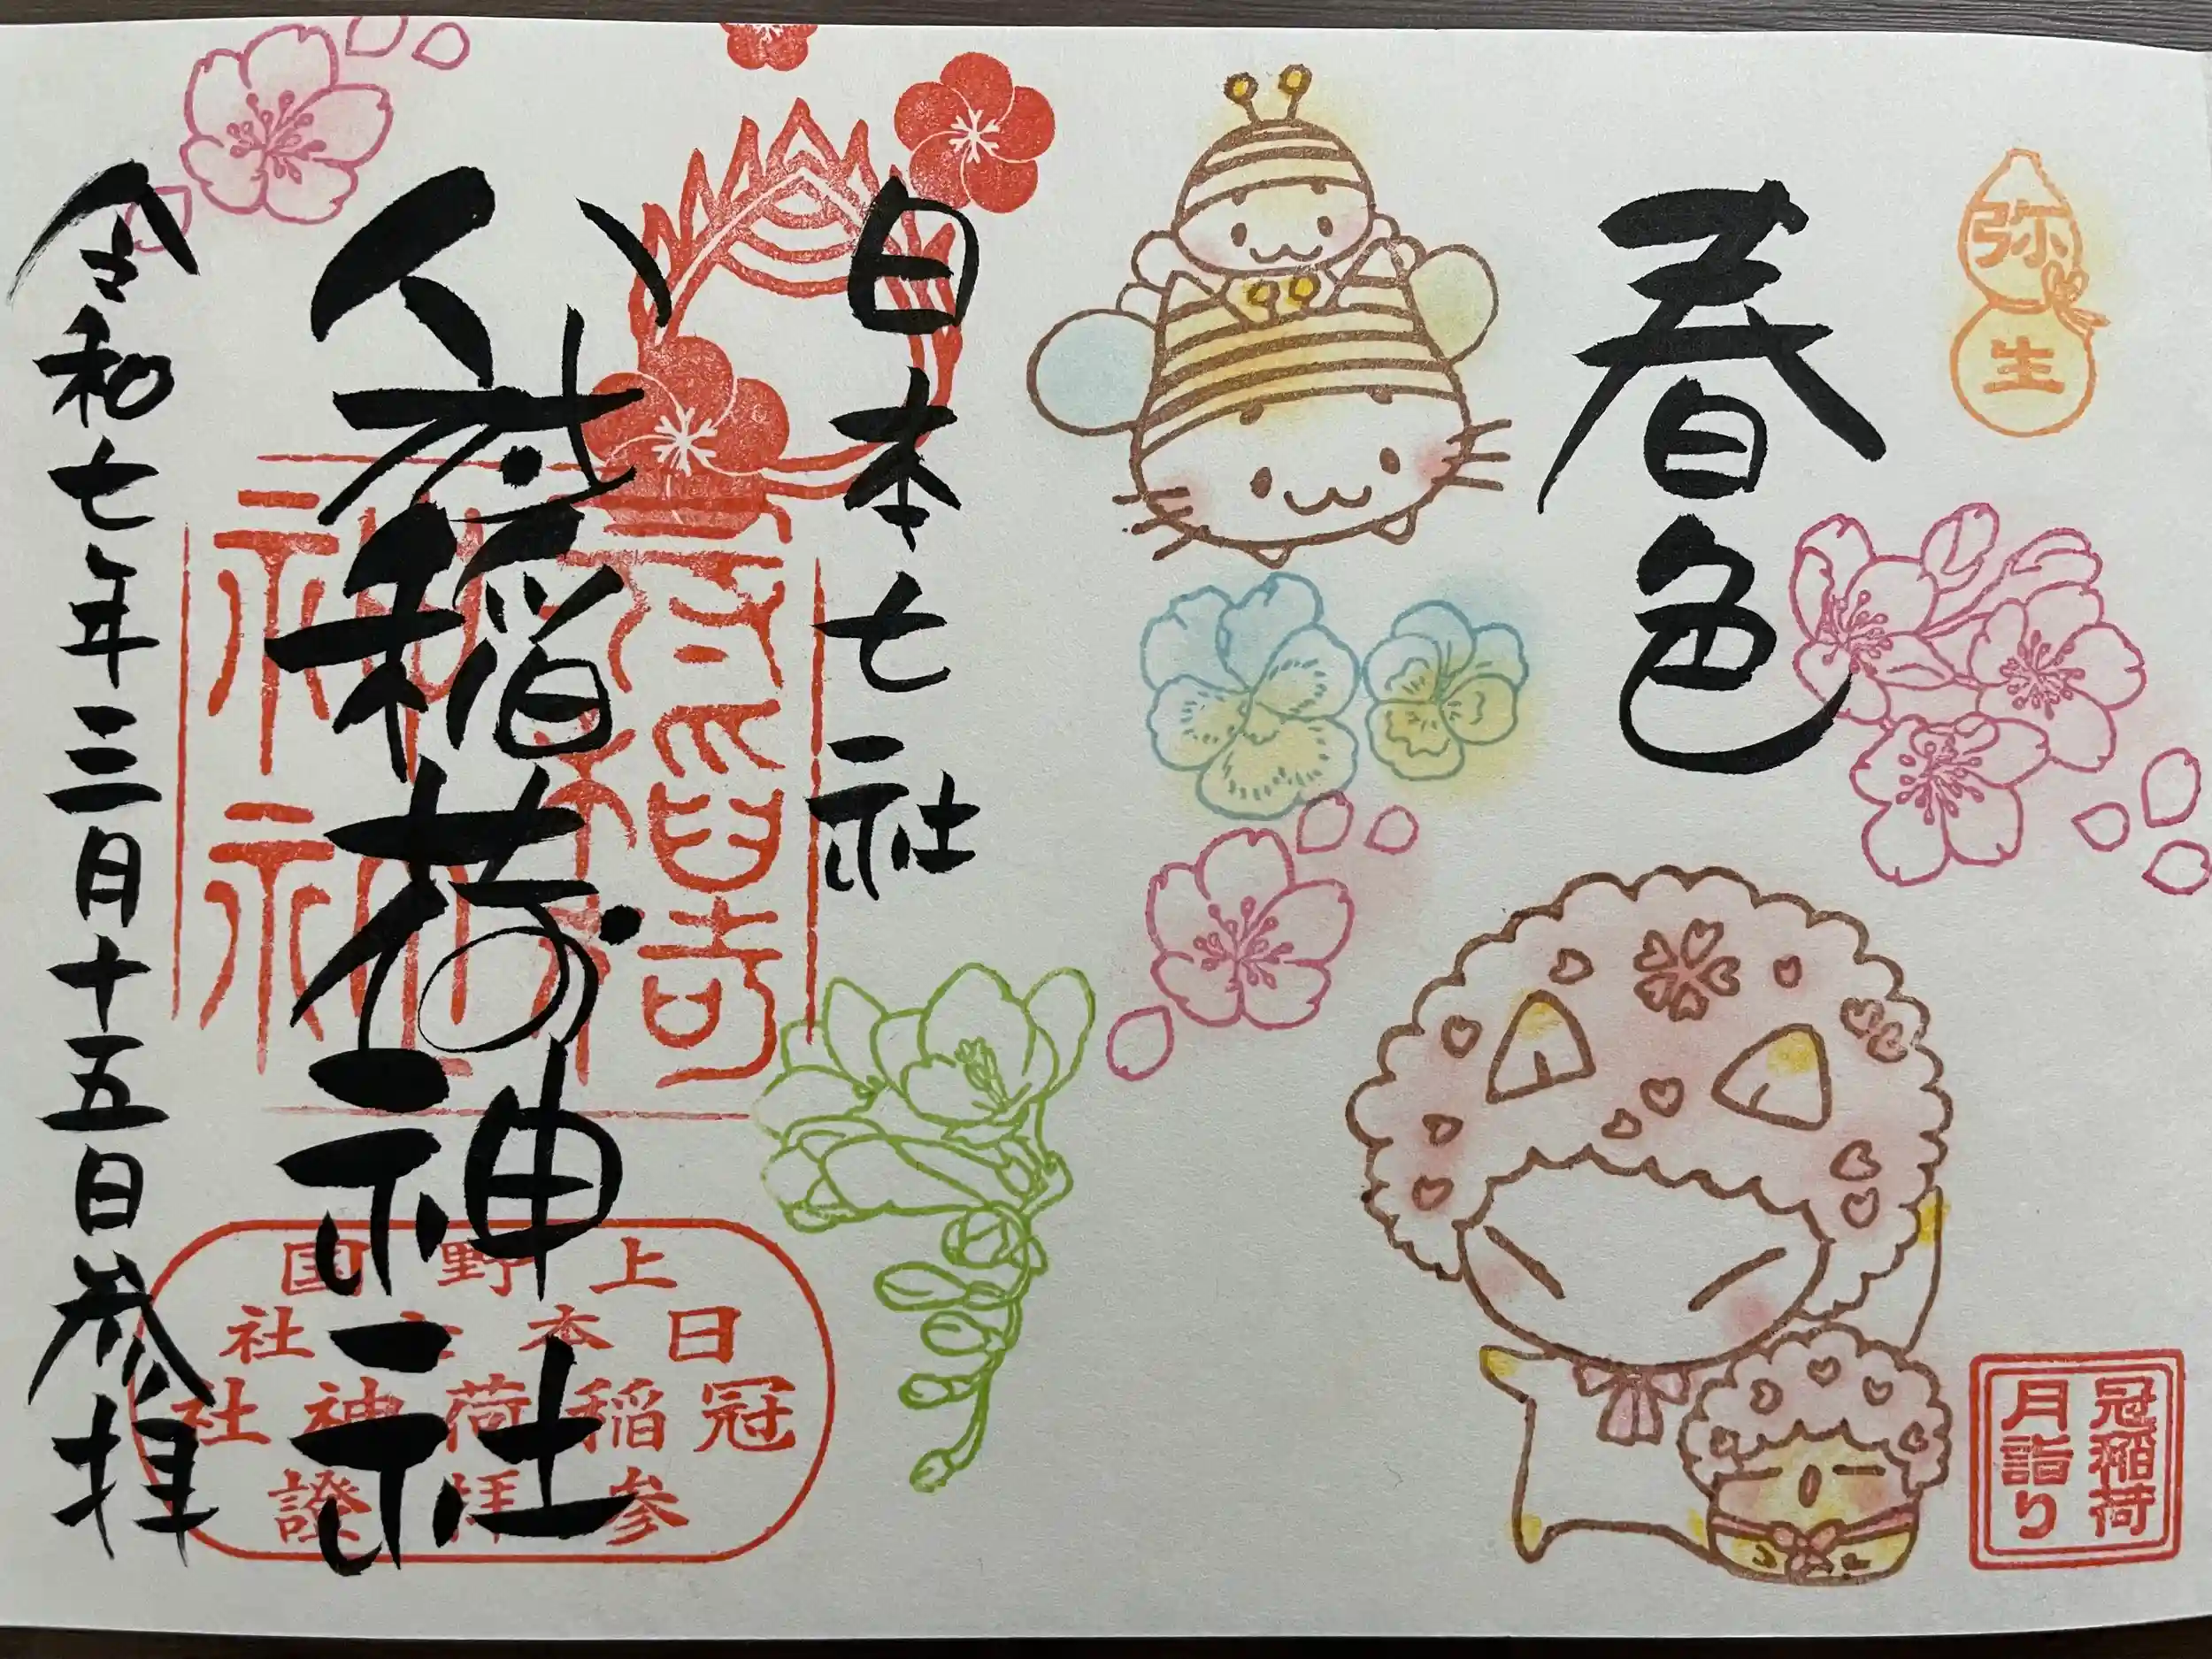 弥生
春色
冠稲荷
月詣り
日本七社
冠稲荷神社
令和七年三月十五日参拝
上野国
日本七社
冠稲荷神社
参拝證